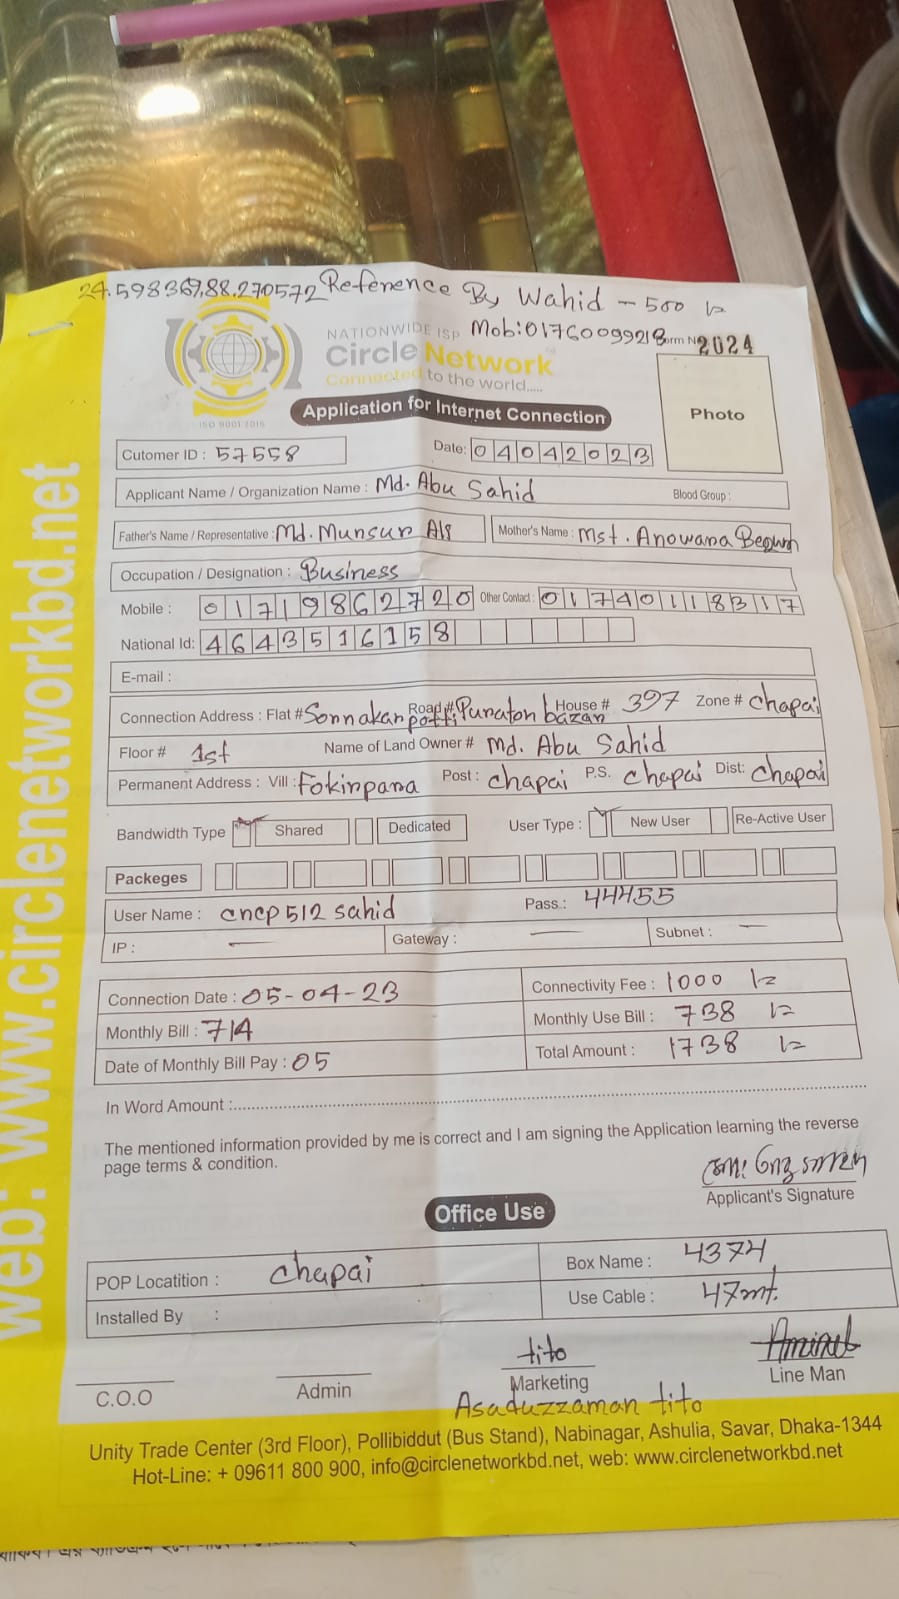 24.598367,88.270572 Reference By Wahid - 500 /=
Mob:01760099218
NATIONWIDE ISP
Form No 2024
Circle Network
Connected to the world.....
ISO 9001:2015
Application for Internet Connection
Photo
Cutomer ID : 57558
Date: 04042023
Applicant Name / Organization Name : Md. Abu Sahid
Blood Group :
Father's Name / Representative : Md. Munsur Ali
Mother's Name : Mst. Anowara Begum
Occupation / Designation : Business
Mobile : 01719862720 Other Contact : 01740118317
National Id: 4643516158
E-mail :
Connection Address : Flat # Sonnakar potti Road # Puraton bazar House # 397 Zone # chapai
Floor # 1st Name of Land Owner # Md. Abu Sahid
Permanent Address : Vill : Fokirpara Post : chapai P.S. chapai Dist: chapai
Bandwidth Type Shared Dedicated User Type : New User Re-Active User
Packeges
User Name : cncp512 sahid Pass.: 44455
IP : — Gateway : — Subnet : —
Connection Date : 05-04-23 Connectivity Fee : 1000 /=
Monthly Bill : 714 Monthly Use Bill : 738 /=
Date of Monthly Bill Pay : 05 Total Amount : 1738 /=
In Word Amount :
The mentioned information provided by me is correct and I am signing the Application learning the reverse
page terms & condition.
Applicant's Signature
Office Use
POP Locatition : chapai Box Name : 4374
Installed By : Use Cable : 47mt.
tito
C.O.O Admin Marketing Line Man
Asaduzzaman tito
Unity Trade Center (3rd Floor), Pollibiddut (Bus Stand), Nabinagar, Ashulia, Savar, Dhaka-1344
Hot-Line: + 09611 800 900, info@circlenetworkbd.net, web: www.circlenetworkbd.net
web: www.circlenetworkbd.net